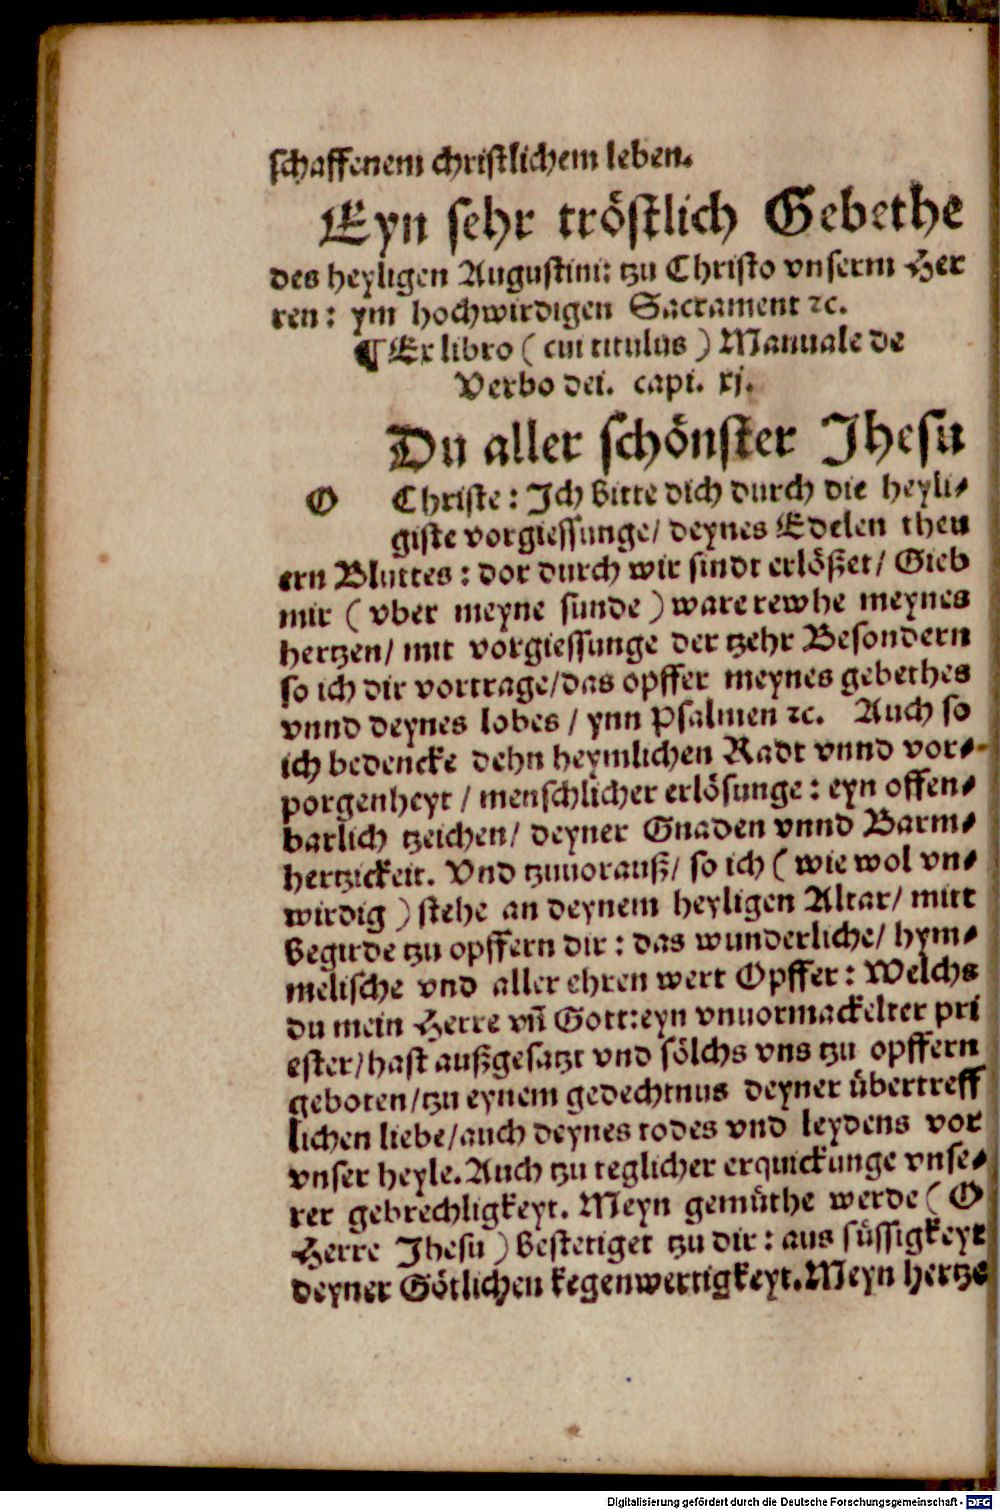 schaffenem christlichem leben.
Eyn sehr tröstlich Gebethe
des heyligen Augustini: tzu Christo vnserm Her
ren: ym hochwirdigen Sacrament ⁊c.
¶ Ex libro ( cui titulus ) Manuale de
Verbo dei. capi. xj.
Du aller schönster Jhesu
O Christe: Jch bitte dich durch die heyli⸗
giste vorgiessunge/ deynes Edelen theu
ern Bluttes: dor durch wir sindt erlößet/ Gieb
mir ( vber meyne sunde ) ware rewhe meynes
hertzen/ mit vorgiessunge der tzehr Besondern
so ich dir vortrage/das opffer meynes gebethes
vnnd deynes lobes / ynn Psalmen ⁊c. Auch so
ich bedencke dehn heymlichen Radt vnnd vor⸗
porgenheyt / menschlicher erlösunge: eyn offen⸗
barlich tzeichen/ deyner Gnaden vnnd Barm⸗
hertzickeit. Vnd tzuuorauß/ so ich ( wie wol vn⸗
wirdig ) stehe an deynem heyligen Altar/ mitt
begirde tzu opffern dir: das wunderliche/ hym⸗
melische vnd aller ehren wert Opffer: Welchs
du mein Herre vn̄ Gott:eyn vnuormackelter pri
ester/hast außgesatzt vnd sölchs vns tzu opffern
geboten/tzu eynem gedechtnus deyner übertreff
lichen liebe/auch deynes todes vnd leydens vor
vnser heyle. Auch tzu teglicher erquickunge vnse⸗
rer gebrechligkeyt. Meyn gemüthe werde ( O
Herre Jhesu ) bestetiget tzu dir: aus süssigkeyt
deyner Götlichen kegenwertigkeyt. Meyn hertze
Digitalisierung gefördert durch die Deutsche Forschungsgemeinschaft - DFG